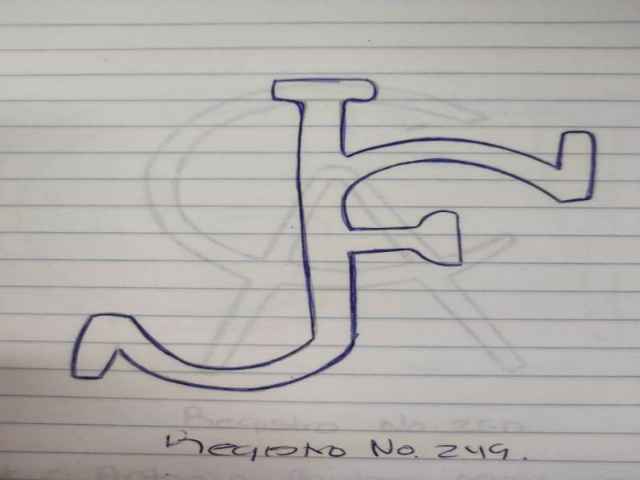 JF
Registro No. 249.